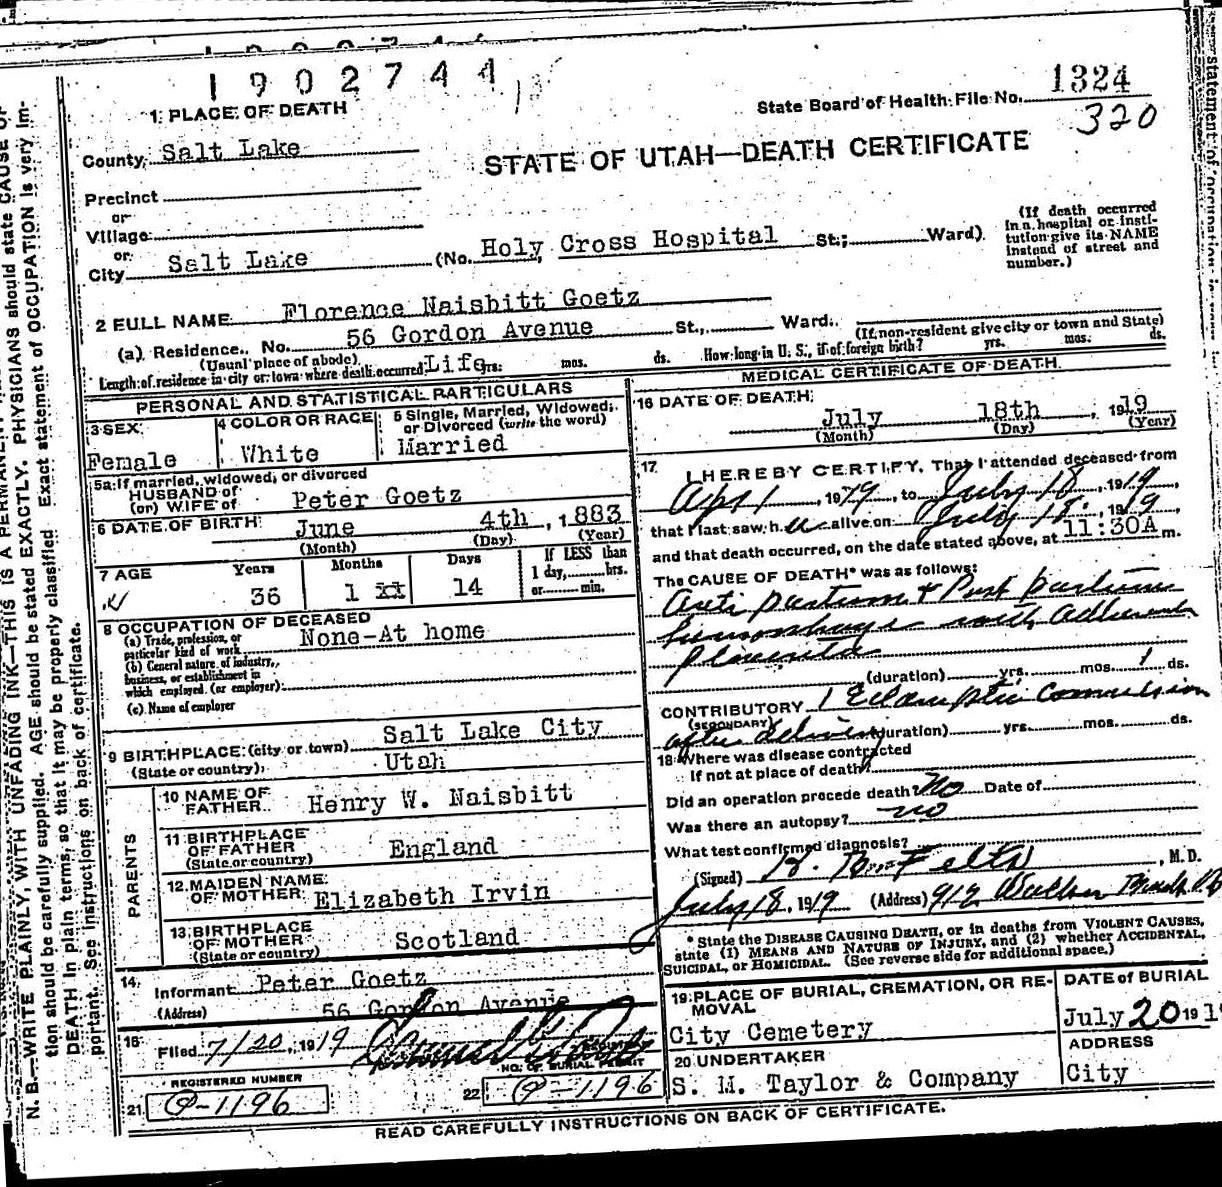 1902744
State Board of Health File No. 1324
320
1 PLACE OF DEATH
STATE OF UTAH—DEATH CERTIFICATE
County, Salt Lake
Precinct
or
Village
or
City Salt Lake (No. Holy Cross Hospital St.; Ward)
(If death occurred in a hospital or institution give its NAME instead of street and number.)
2 FULL NAME Florence Naisbitt Goetz
(a) Residence. No. 56 Gordon Avenue St., Ward.
(Usual place of abode) (If non-resident give city or town and State)
Length of residence in city or town where death occurred Life yrs. mos. ds. How long in U. S., if of foreign birth? yrs. mos. ds.
PERSONAL AND STATISTICAL PARTICULARS
3 SEX Female
4 COLOR OR RACE White
5 Single, Married, Widowed, or Divorced (write the word) Married
5a If married, widowed, or divorced
HUSBAND of
(or) WIFE of Peter Goetz
6 DATE OF BIRTH June 4th, 1883
(Month) (Day) (Year)
7 AGE Years 36 Months 1 Days 14 If LESS than 1 day, hrs. or min.
8 OCCUPATION OF DECEASED
(a) Trade, profession, or particular kind of work None-At home
(b) General nature of industry, business, or establishment in which employed (or employer)
(c) Name of employer
9 BIRTHPLACE (city or town) Salt Lake City
(State or country) Utah
PARENTS
10 NAME OF FATHER Henry W. Naisbitt
11 BIRTHPLACE OF FATHER (State or country) England
12 MAIDEN NAME OF MOTHER Elizabeth Irvin
13 BIRTHPLACE OF MOTHER (State or country) Scotland
14 Informant Peter Goetz
(Address) 56 Gordon Avenue
15 Filed 7/20, 1919
REGISTERED NUMBER
21 O-1196
NO. OF BURIAL PERMIT
22 O-1196
MEDICAL CERTIFICATE OF DEATH
16 DATE OF DEATH July 18th, 1919
(Month) (Day) (Year)
17 I HEREBY CERTIFY, That I attended deceased from
Apr 1, 1919, to July 18, 1919,
that I last saw her alive on July 18, 1919,
and that death occurred, on the date stated above, at 11:30A m.
The CAUSE OF DEATH* was as follows:
Anti partum & Post partum
hemorrhage with adherent
placenta
(duration) yrs. mos. 1 ds.
CONTRIBUTORY 1 Eclamptic Convulsion
(SECONDARY)
after delivery (duration) yrs. mos. ds.
18 Where was disease contracted
If not at place of death?
Did an operation precede death? No Date of
Was there an autopsy? no
What test confirmed diagnosis?
(Signed) M.D.
July 18, 1919 (Address) 912 Walker
* State the DISEASE CAUSING DEATH, or in deaths from VIOLENT CAUSES,
state (1) MEANS AND NATURE OF INJURY, and (2) whether ACCIDENTAL,
SUICIDAL, or HOMICIDAL. (See reverse side for additional space.)
19 PLACE OF BURIAL, CREMATION, OR REMOVAL City Cemetery
DATE OF BURIAL July 20 191
20 UNDERTAKER S. M. Taylor & Company
ADDRESS City
READ CAREFULLY INSTRUCTIONS ON BACK OF CERTIFICATE.
N. B.—WRITE PLAINLY, WITH UNFADING INK—THIS IS A PERMANENT
tion should be carefully supplied. AGE should be stated EXACTLY. PHYSICIANS should state CAUSE OF
DEATH in plain terms, so that it may be properly classified. Exact statement of OCCUPATION is very im-
portant. See instructions on back of certificate.
statement of occupation